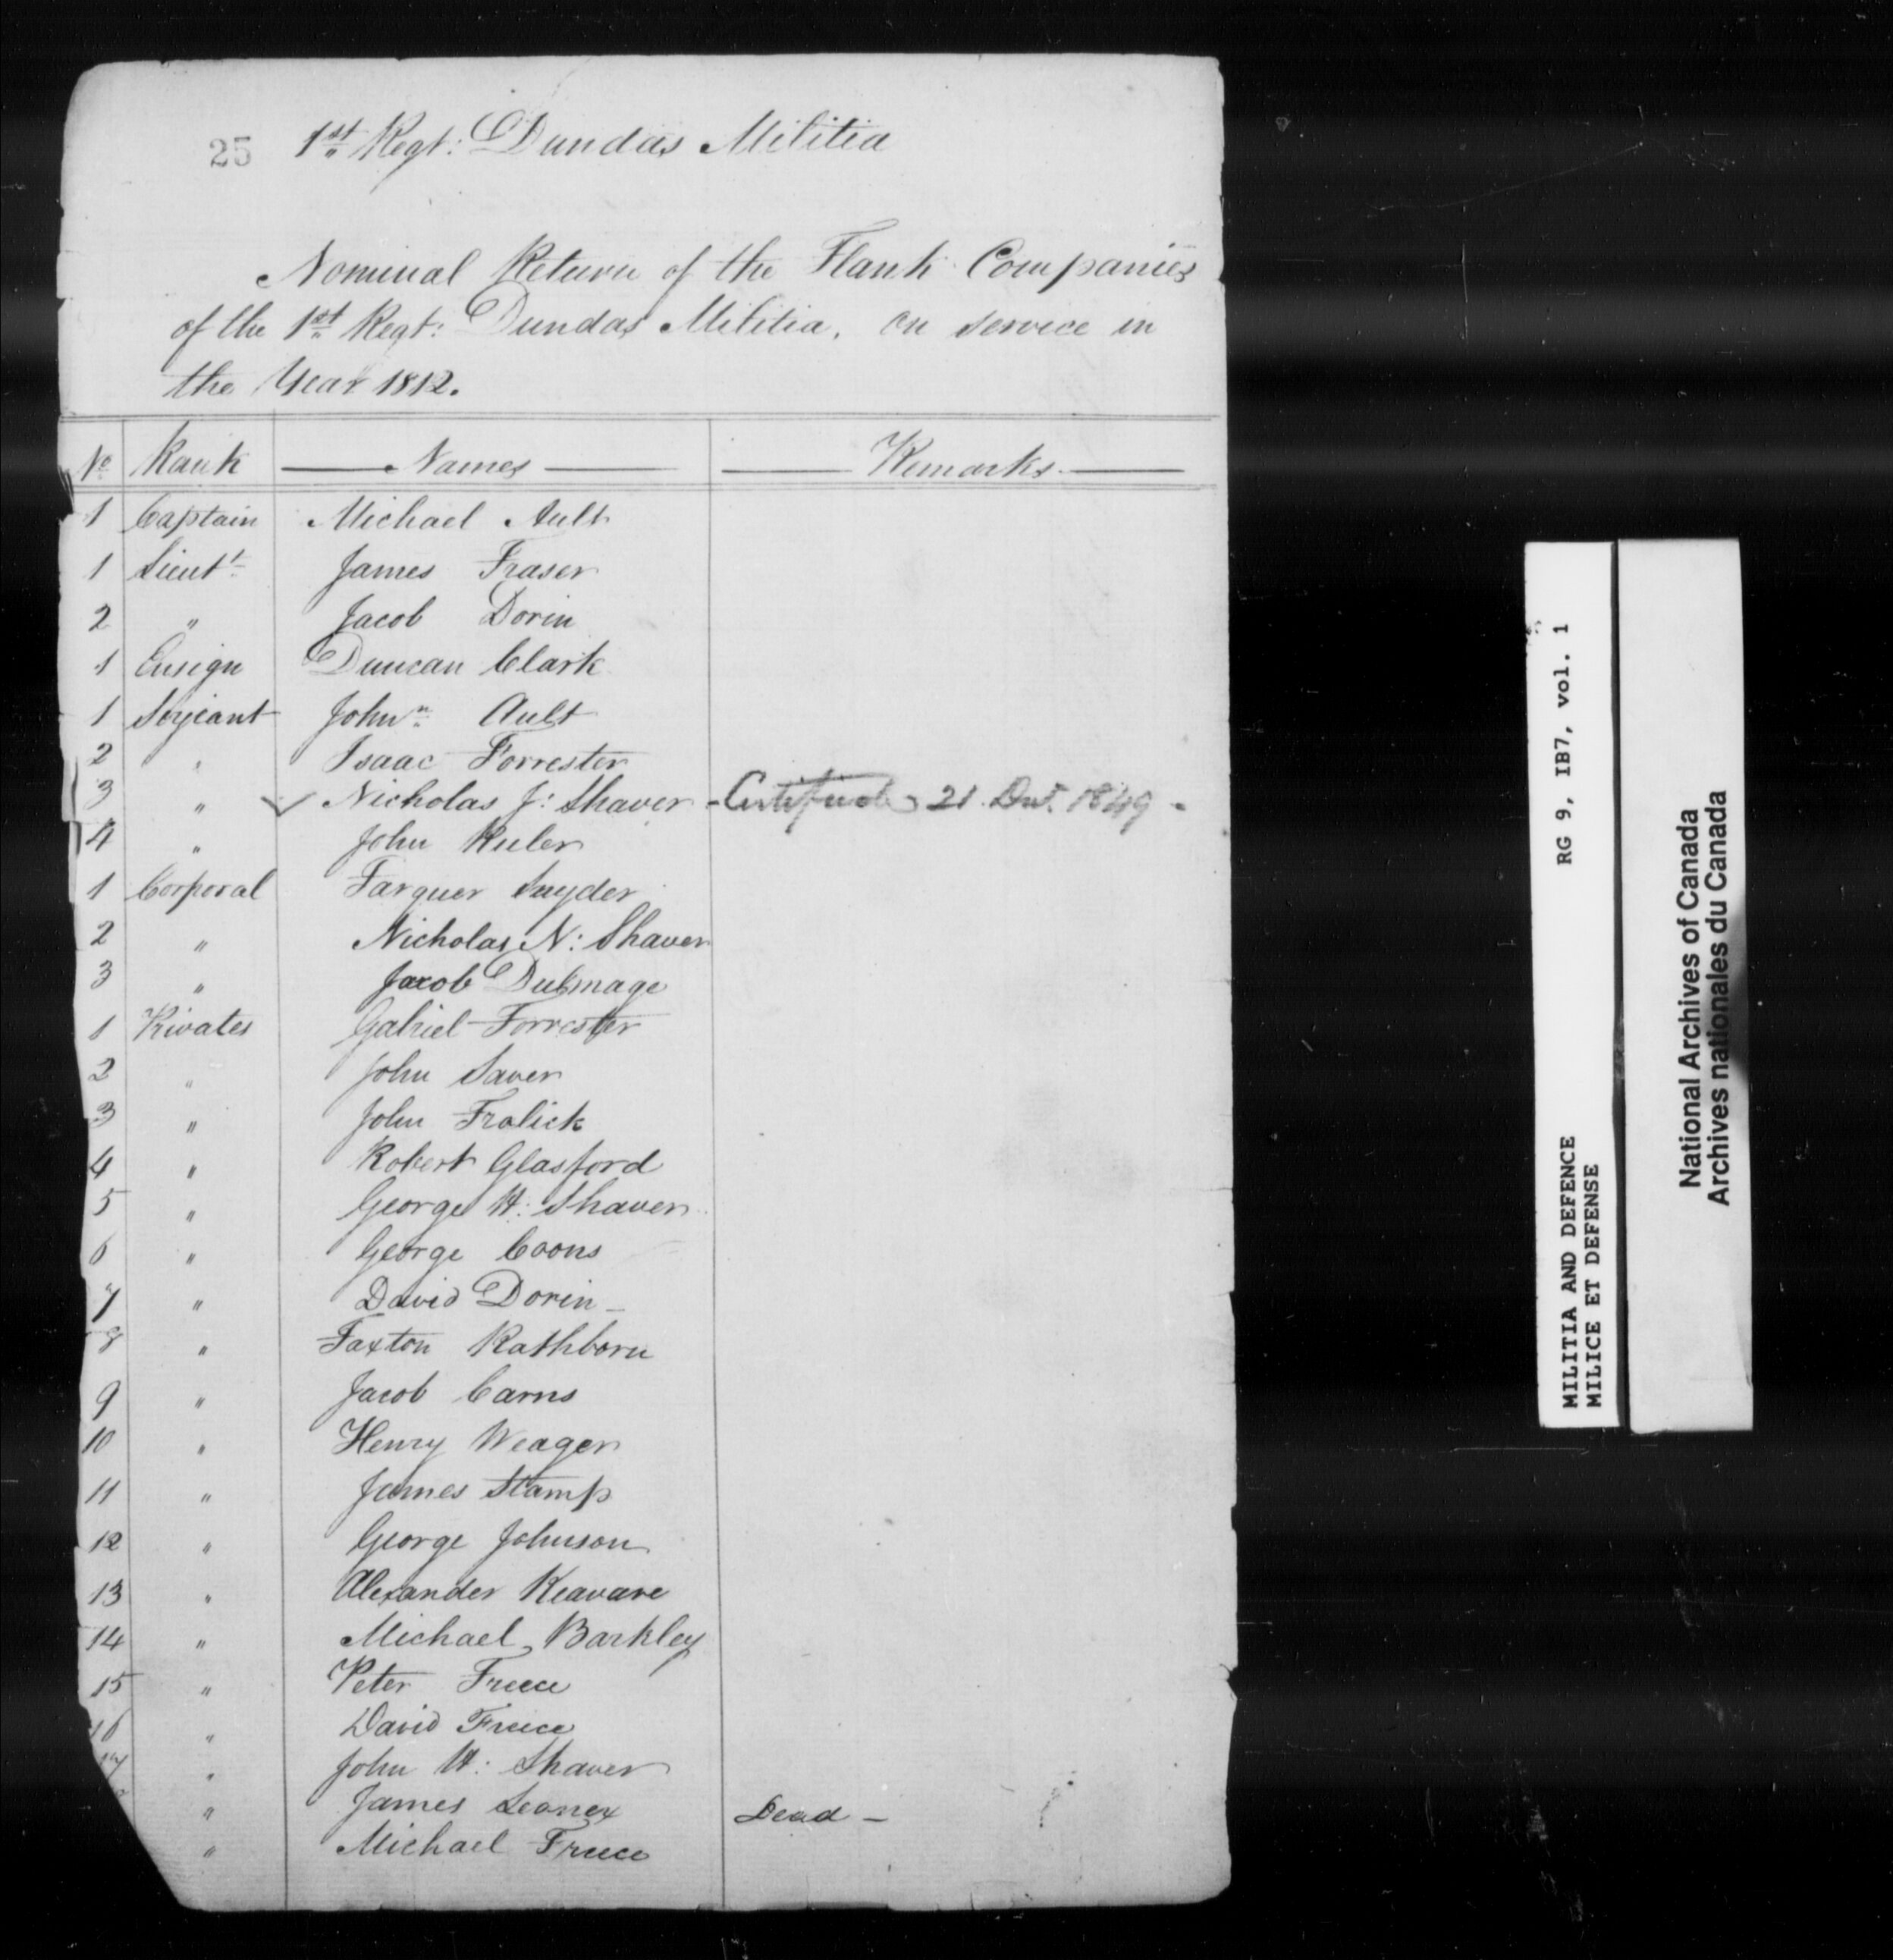 25 1st Regt: Dundas Militia
Nominal Return of the Flank Companies
of the 1st Regt: Dundas Militia, on service in
the Year 1812.
No Rank Names Remarks
1 Captain Michael Ault
1 Lieut t James Fraser
2 " Jacob Dorin
1 Ensign Duncan Clark
1 Serjeant John n Ault
2 " Isaac Forrester
3 " ✓ Nicholas J: Shaver - 21 1849 -
4 " John
1 Corporal Farquer Snyder
2 " Nicholas N: Shaver
3 " Jacob Dulmage
1 Privates Gabriel Forrester
2 " John Saver
3 " John Fralick
4 " Robert Glasford
5 " George H: Shaver
6 " George Coons
7 " David Dorin
8 " Faxton Rathborn
9 " Jacob Carns
10 " Henry Weager
11 " James Stamp
12 " George Johnson
13 " Alexander
14 " Michael Barkley
15 " Peter Freece
16 " David Freece
17 " John H: Shaver
" James Dead -
" Michael Freece
MILITIA AND DEFENCE RG 9, IB7, vol. 1
MILICE ET DEFENSE
National Archives of Canada
Archives nationales du Canada